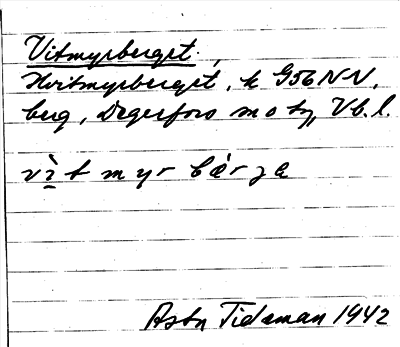 Vitmyrberget.,
Hvitmyrberget, k G56 NV,
berg, Degerfors sn o tg, Vb. l.
vìt myr bær ga
Astn Tideman 1942